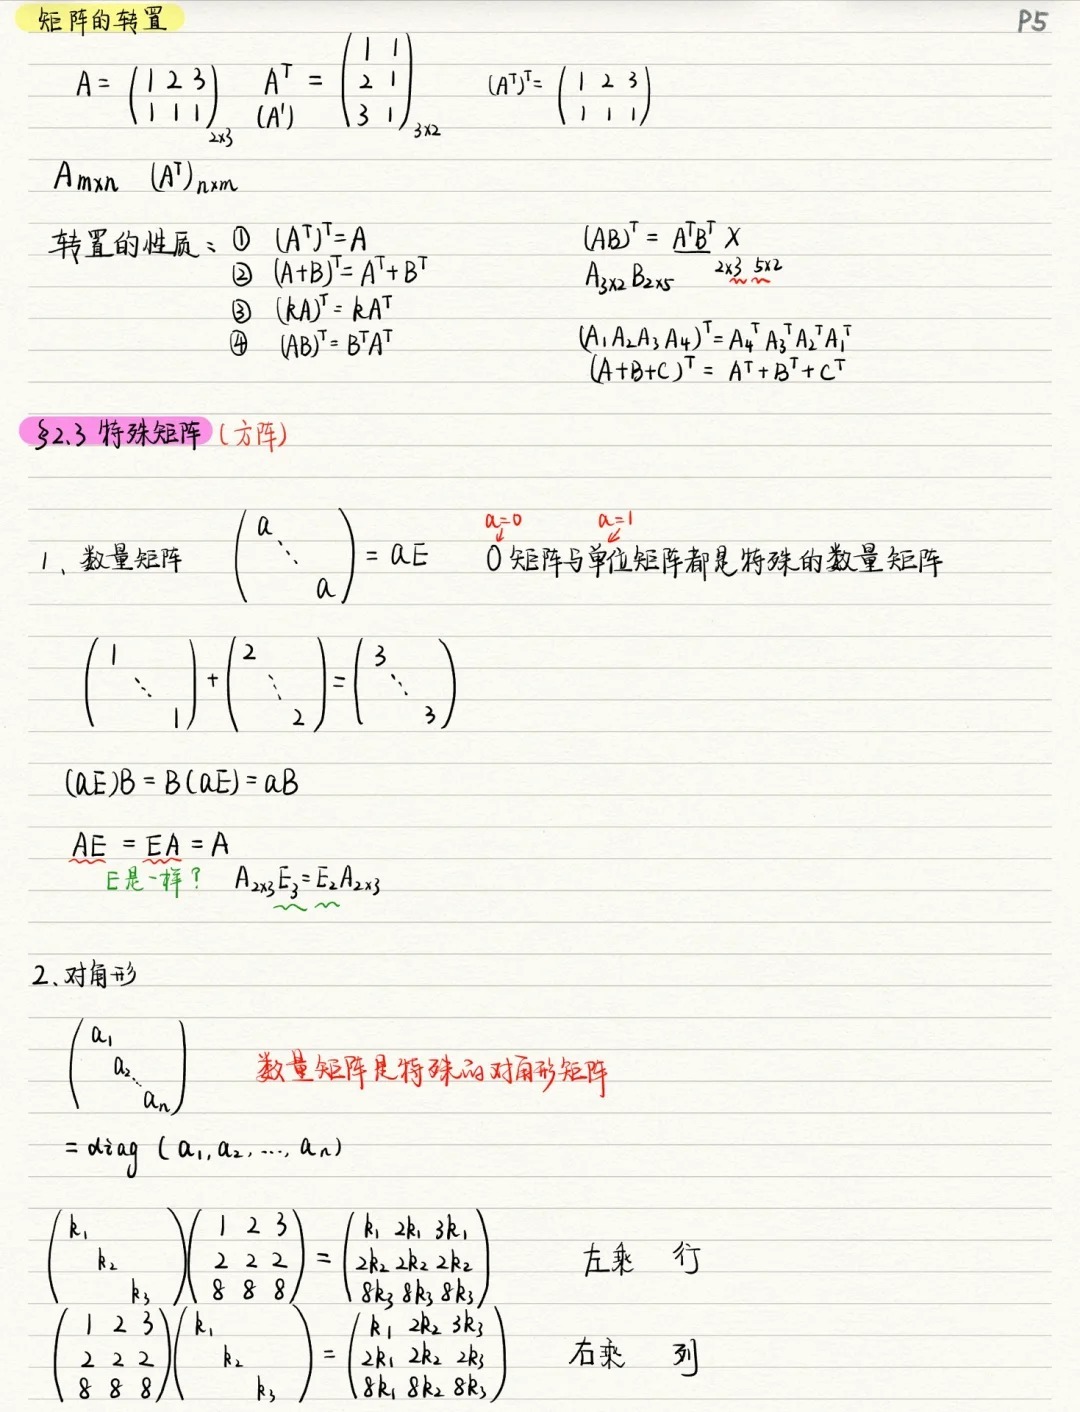 矩阵的转置 P5
A = (1 2 3
1 1 1)₂ₓ₃ Aᵀ (A') = (1 1
2 1
3 1)₃ₓ₂ (Aᵀ)ᵀ = (1 2 3
1 1 1)
Aₘₓₙ (Aᵀ)ₙₓₘ
转置的性质: ① (Aᵀ)ᵀ=A
② (A+B)ᵀ=Aᵀ+Bᵀ
③ (kA)ᵀ=kAᵀ
④ (AB)ᵀ=BᵀAᵀ
(AB)ᵀ = AᵀBᵀ X
A₃ₓ₂B₂ₓ₅ 2x3 5x2
(A₁A₂A₃A₄)ᵀ=A₄ᵀA₃ᵀA₂ᵀA₁ᵀ
(A+B+C)ᵀ = Aᵀ+Bᵀ+Cᵀ
§2.3 特殊矩阵 (方阵)
a=0 a=1
1、数量矩阵 (a ⋱ a) = aE 0矩阵与单位矩阵都是特殊的数量矩阵
(1 ⋱ 1) + (2 ⋱ 2) = (3 ⋱ 3)
(aE)B = B(aE) = aB
AE = EA = A
E是一样? A₂ₓ₃E₃=E₂A₂ₓ₃
2、对角形
(a₁ a₂ ⋱ aₙ) 数量矩阵是特殊的对角形矩阵
= diag (a₁, a₂, …, aₙ)
(k₁ k₂ k₃)(1 2 3
2 2 2
8 8 8) = (k₁ 2k₁ 3k₁
2k₂ 2k₂ 2k₂
8k₃ 8k₃ 8k₃) 左乘 行
(1 2 3
2 2 2
8 8 8)(k₁ k₂ k₃) = (k₁ 2k₂ 3k₃
2k₁ 2k₂ 2k₃
8k₁ 8k₂ 8k₃) 右乘 列